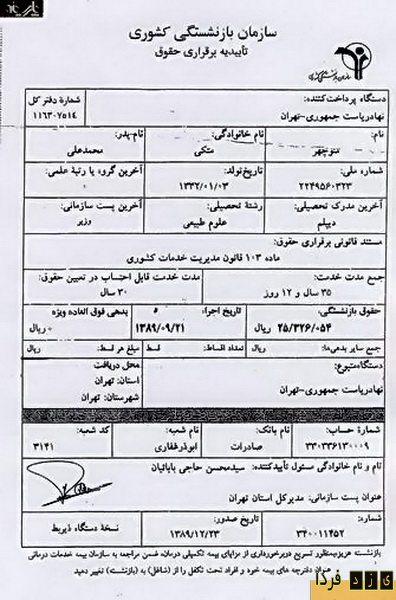 سازمان بازنشستگی کشوری
تأییدیه برقراری حقوق
دستگاه پرداخت‌کننده:
شماره دفتر کل
نهاد ریاست جمهوری-تهران
۱۱۶۳۰۷۵۱۴
نام:
نام خانوادگی:
نام-پدر:
منوچهر
متکی
محمدعلی
شماره ملی:
تاریخ تولد:
آخرین گروه یا رتبة علمی:
۲۲۴۹۵۶۰۳۲۳
۱۳۳۲/۰۱/۰۳
آخرین مدرک تحصیلی:
رشتة تحصیلی:
آخرین پست سازمانی:
دیپلم
علوم طبیعی
وزیر
مستند قانونی برقراری حقوق:
ماده ۱۰۳ قانون مدیریت خدمات کشوری
جمع مدت خدمت:
مدت خدمت قابل احتساب در تعیین حقوق:
۳۵ سال و ۱۲ روز
۳۰ سال
حقوق بازنشستگی:
تاریخ اجرا:
بدهی فوق العاده ویژه
۲۵/۳۲۶/۰۵۴ ریال
۱۳۸۹/۰۹/۲۱
۰ ریال
جمع سایر بدهی‌ها: ریال
تعداد اقساط: قسط
مبلغ هر قسط: ریال
دستگاه متبوع:
محل دریافت
نهاد ریاست جمهوری-تهران
استان: تهران
شهرستان: تهران
شماره حساب:
نام بانک:
نام شعبه:
کد شعبه:
۳۳۰۳۳۶۱۳۰۰۰۹
صادرات
ابوذرغفاری
۳۱۴۱
نام و نام خانوادگی مسئول تأییدکننده: سیدمحسن حاجی بابائیان
عنوان پست سازمانی: مدیرکل استان تهران
شماره:
تاریخ صدور:
نسخة دستگاه ذیربط
۳۴۰۰۱۱۴۵۲
۱۳۸۹/۱۲/۲۳
بازنشسته عزیز بمنظور تسریع در برخورداری از مزایای بیمه تکمیلی درمان، ضمن مراجعه به سازمان بیمه خدمات درمانی
عنوان دفترچه های بیمه خود و افراد تحت تکفل را از (شاغل) به (بازنشسته) تغییر دهید
یزد فردا